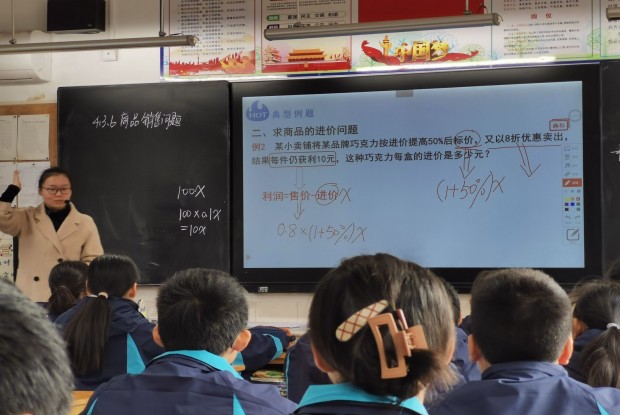 中国梦
4.3.6 商品销售问题
100X
100×0.1X
=10X
HOT 典型例题
二、求商品的进价问题
例2 某小卖铺将某品牌巧克力按进价提高50%后标价，又以8折优惠卖出，
结果每件仍获利10元，这种巧克力每盒的进价是多少元？
利润=售价-进价 X
(1+50%)X
0.8×(1+50%)X